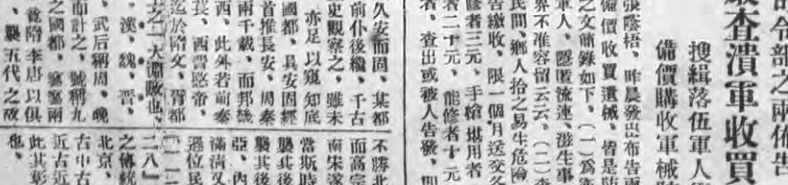 司令部之兩佈告
嚴查潰軍收買
搜緝落伍軍人
備價購收軍械
張蔭梧、昨晨發出布告兩
備價收買遺械、皆是防
之文簡錄如下、(一)爲
軍人、隱匿流連、滋生事
界不准容留云云、(二)查
民間、鄉人拾之易生危險
告繳收、限一個月送交各
修者三元、手槍堪用者
者二十元、能修者十元
者、查出或被人告發、即
久安而固、某都
前仆後繼、千古
史觀察之、雖未
亦足以窺知底
國都、長安固輕
首推長安、周秦
兩千載、而邦畿
西、此外若前秦
萇、西晉愍帝、
迄於隋文、胥都
之一大淵藪也、
漢、魏、晉、
武后稱周、晚
而計之、號稱九
之國都、寥寥兩
竟隋李唐以俱
、襲五代之破
不勝北
而高宗
南宋遂
當斯時
襲其後
襲其後
亞、內
滿清又
遜位民
『一一
二八』
之傳統
北京、
古中古
近古近
此其彰
也、